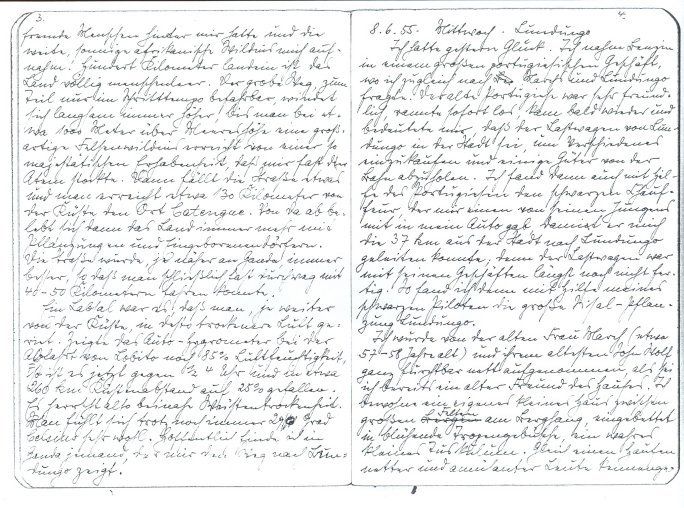 3.
fremde Menschen hinter mir hatte und die
weite, sonnige afrikanische Wildnis mich auf-
nahm. Hundert Kilometer landein ist das
Land völlig menschenleer. Der grobe Weg, zum
Teil nur im Schrittempo befahrbar, windet
sich langsam immer höher, bis man bei et-
wa 1000 Meter über Meereshöhe eine groß-
artige Felsenwildnis erreicht von einer so
majestätischen Erhabenheit, daß mir fast der
Atem stockte. Dann fällt die Straße etwas
und man erreicht etwa 130 Kilometer von
der Küste den Ort Catengue. Von da ab be-
lebt sich dann das Land immer mehr mit
Pflanzungen und Eingeborenendörfern.
Die Straße wurde, je näher an Ganda, immer
besser, so daß man schließlich fast durchweg mit
40-50 Kilometern fahren konnte.
Ein Labsal war es, daß man, je weiter
von der Küste, in desto trockenere Luft ge-
riet. Zeigte das Auto-Hygrometer bei der
Abfahrt von Lobito noch 85% Luftfeuchtigkeit,
so ist es jetzt gegen 1/2 4 Uhr und in etwa
200 km Küstenabstand auf 25% gefallen.
Es herrscht also beinahe Wüstentrockenheit.
Man fühlt sich trotz noch immer Grad
Celsius sehr wohl. Hoffentlich finde ich in
Ganda jemand, der mir den Weg nach Lun-
dungo zeigt.
4.
8.6.55. Mittwoch. Lundungo
Ich hatte gestern Glück. Ich nahm Benzin
in einem großen portugiesischen Geschäft,
wo ich zugleich nach March und Lundungo
fragte. Der alte Portugiese war sehr freund-
lich, rannte sofort los, kam bald wieder und
bedeutete mir, daß der Lastwagen von Lun-
dungo in der Stadt sei, um Verschiedenes
einzukaufen und einige Güter von der
Bahn abzuholen. Ich fand dann auch mit Hil-
fe des Portugiesen den schwarzen Chauf-
feur, der mir einen von seinen Jungens
mit in mein Auto gab, damit er mich
die 37 km aus der Stadt nach Lundungo
geleiten konnte, denn der Lastwagen war
mit seinen Geschäften längst noch nicht fer-
tig. So fand ich denn mit Hilfe meines
schwarzen Piloten die große Sisal-Pflan-
zung Lundungo.
Ich wurde von der alten Frau March (etwa
57-58 Jahre alt) und ihrem ältesten Sohn Wolf
ganz furchtbar nett aufgenommen, als sei
ich bereits ein alter Freund des Hauses. Ich
bewohne ein eigenes kleines Haus zwischen
großen Felsen am Berghang, eingebettet
in blühende Tropengebüsche, ein wahres
kleines Tuskulum. Gleich einen Haufen
netter und amüsanter Leute kennenge-